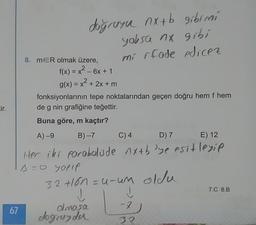 doğruyu nx+b gibi mi
yoksa nx gibi
mi ifade edicez
8. m∈R olmak üzere,
f(x) = x² – 6x + 1
g(x) = x² + 2x + m
fonksiyonlarının tepe noktalarından geçen doğru hem f hem
de g nin grafiğine teğettir.
Buna göre, m kaçtır?
A) –9 B) –7 C) 4 D) 7 E) 12
Her iki parabolüde nx+b 'ye eşitleyip
Δ=0 yapıp
32 +16n = 4-4m oldu
olmasa
doğruydu
32
7.C 8.B
67
ir.